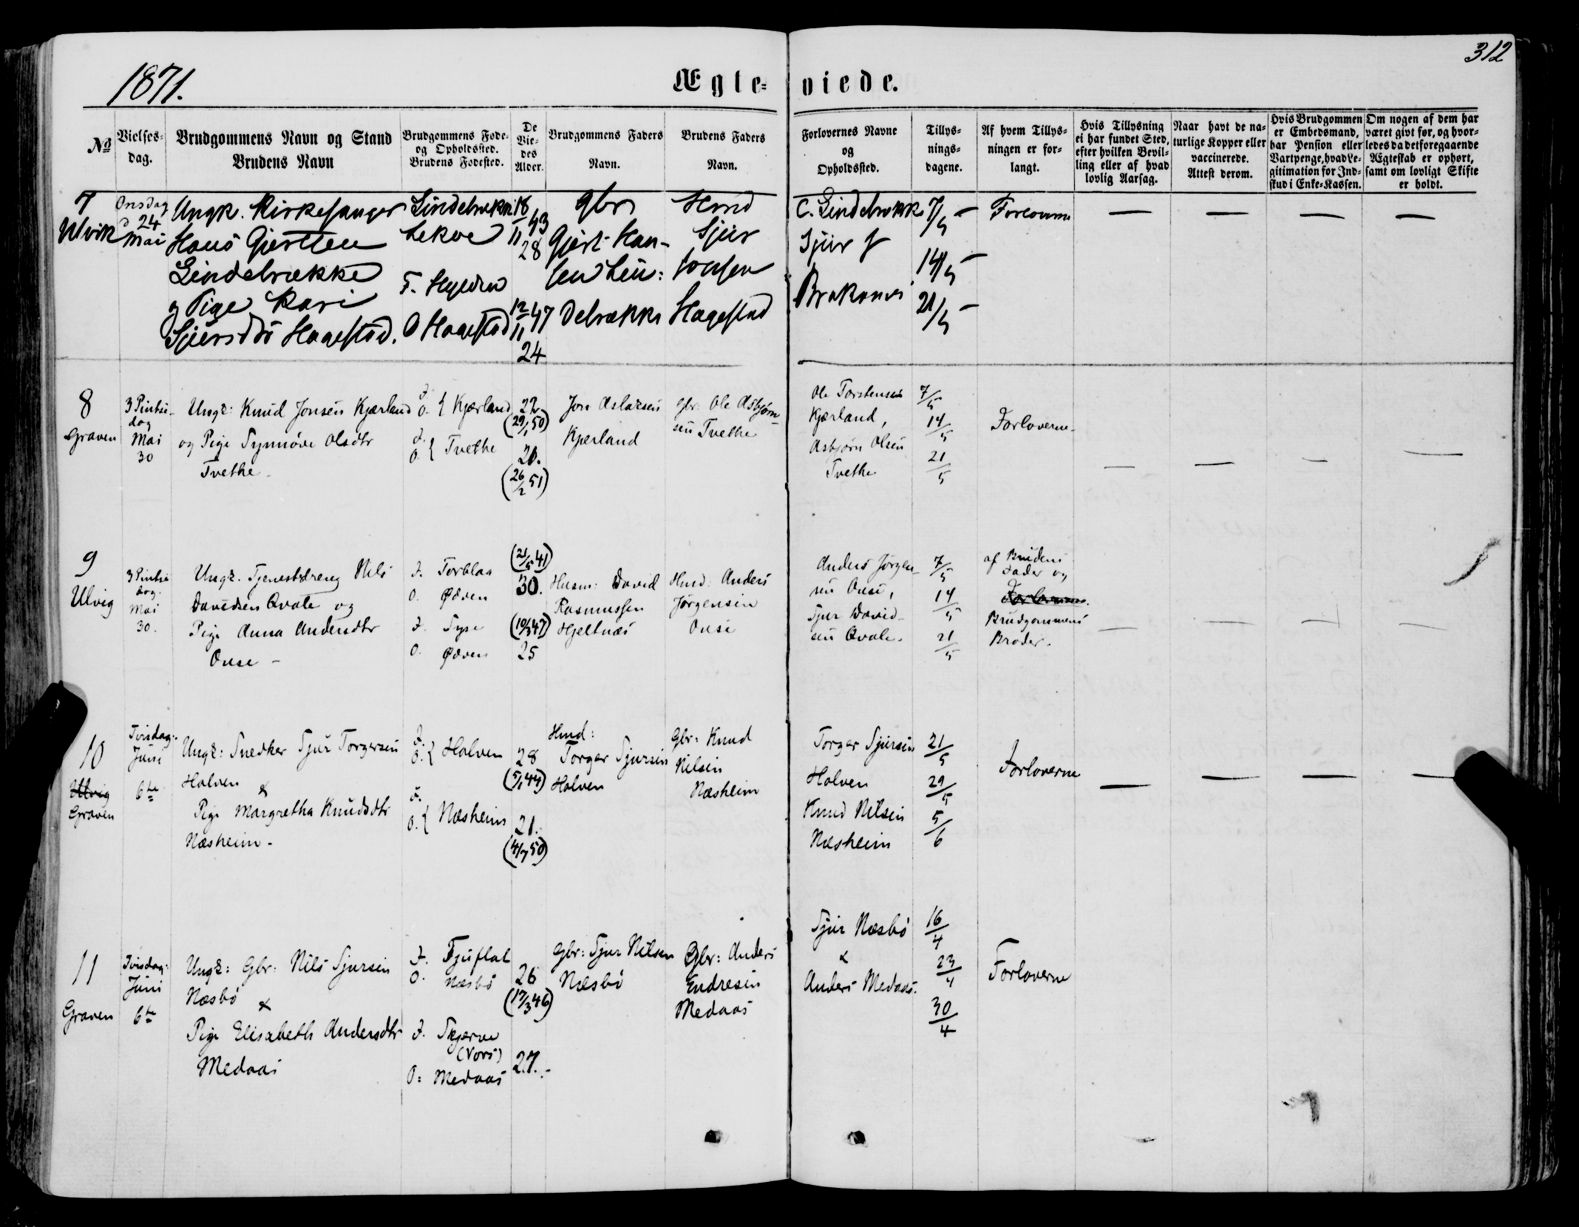 312
1871.
Ægte-
viede.
No
Vielses-
dag.
Brudgommens Navn og Stand
Brudens Navn
Brudgommens Føde-
og Opholdssted.
Brudens Fødested.
De
Vie-
des
Alder.
Brudgommens Faders
Navn.
Brudens Faders
Navn.
Forlovernes Navne
og
Opholdssted.
Tillys-
nings-
dagene.
Af hvem Tillys-
ningen er for-
langt.
Hvis Tillysning
ei har fundet Sted,
efter hvilken Bevil-
ling eller af hvad
lovlig Aarsag.
Naar havt de na-
turlige Kopper eller
vaccinerede.
Attest derom.
Hvis Brudgommen
er Embedsmand,
har Pension eller
Vartpenge, hvad Le-
gitimation for Ind-
skud i Enke-Kassen.
Om nogen af dem har
været givt før, og hvor-
ledes da det foregaaende
Ægteskab er ophørt,
samt om lovligt Skifte
er holdt.
7
Ulvik
Onsdag
24
Mai
Ungk. Kirkesanger
Hans Gjertsen
Lindebrække
og Pige Kari
Sjursdtr Hagestad.
Lindebrække
O Hagestad
18/11 43
28
12/11 47
24
Gbr
Gjert Han-
sen Lin-
debrække
Hmd
Sjur
Hagestad
Lindebrække
Sjur
Brakanes
7/5
14/5
21/5
Forloverne
8
Graven
3 Pintse-
dag
Mai
30
Ungk: Knud Jonsen Kjærland
og Pige Synnøve Olsdtr
Tvethe
F.
O. { Kjærland
F.
O. { Tvethe
22
(29/1 50)
20.
(26/2 51)
Jon Aslaksen
Kjærland
Gbr. Ole Asbjørn-
sen Tvethe
Ole Torstensen
Kjærland,
Asbjørn Olsen
Tvethe
7/5
14/5
21/5
Forloverne
9
Ulvig
3 Pintse
dag
Mai
30.
Ungk. Tjenestdreng Nils
Davidsen Qvale og
Pige Anna Andersdtr
Onse
F. Torblaa
O. Ødven
F. Syse
O. Ødven
(21/5 41)
30.
(10/3 47)
25
Husm: David
Rasmussen
Hjeltnæs
Hmd: Anders
Jørgensen
Onse
Anders Jørgen-
sen Onse,
Sjur David-
sen Qvale.
7/5
14/5
21/5
af Brudens
Fader og
Forloverne.
Brudgommens
Broder.
10
Ulvig
Graven
Tirsdag.
Juni
6te
Ungk: Snedker Sjur Torgersen
Halven &
Pige Margretha Knudsdtr
Næsheim
F.
O. { Halven
F.
O. { Næsheim
28
(5/1 44)
21.
(4/7 50)
Hmd:
Torger Sjursen
Halven
Gbr: Knud
Nilsen
Næsheim
Torger Sjursen
Halven
Knud Nilsen
Næsheim
21/5
29/5
5/6
Forloverne
11
Graven
Tirsdag.
Juni
6te
Ungk: Gbr: Nils Sjursen
Næsbø &
Pige Elisabeth Andersdtr
Medaas
F. Fjuflat
O. Næsbø
F. Skjerve
(Vors)
O: Medaas
26
(17/3 46)
27.
Gbr: Sjur Nilsen
Næsbø
Gbr: Anders
Endresen
Medaas
Sjur Næsbø
&
Anders Medaas.
16/4
23/4
30/4
Forloverne